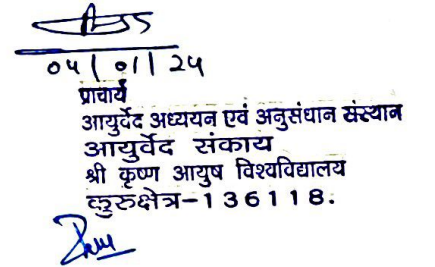 04/01/24
प्राचार्य
आयुर्देद अध्ययन एवं अनुसंधान संस्थान
आयुर्वेद संकाय
श्री कृष्ण आयुष विश्यविद्यालय
कुरुक्षेत्र-136118.